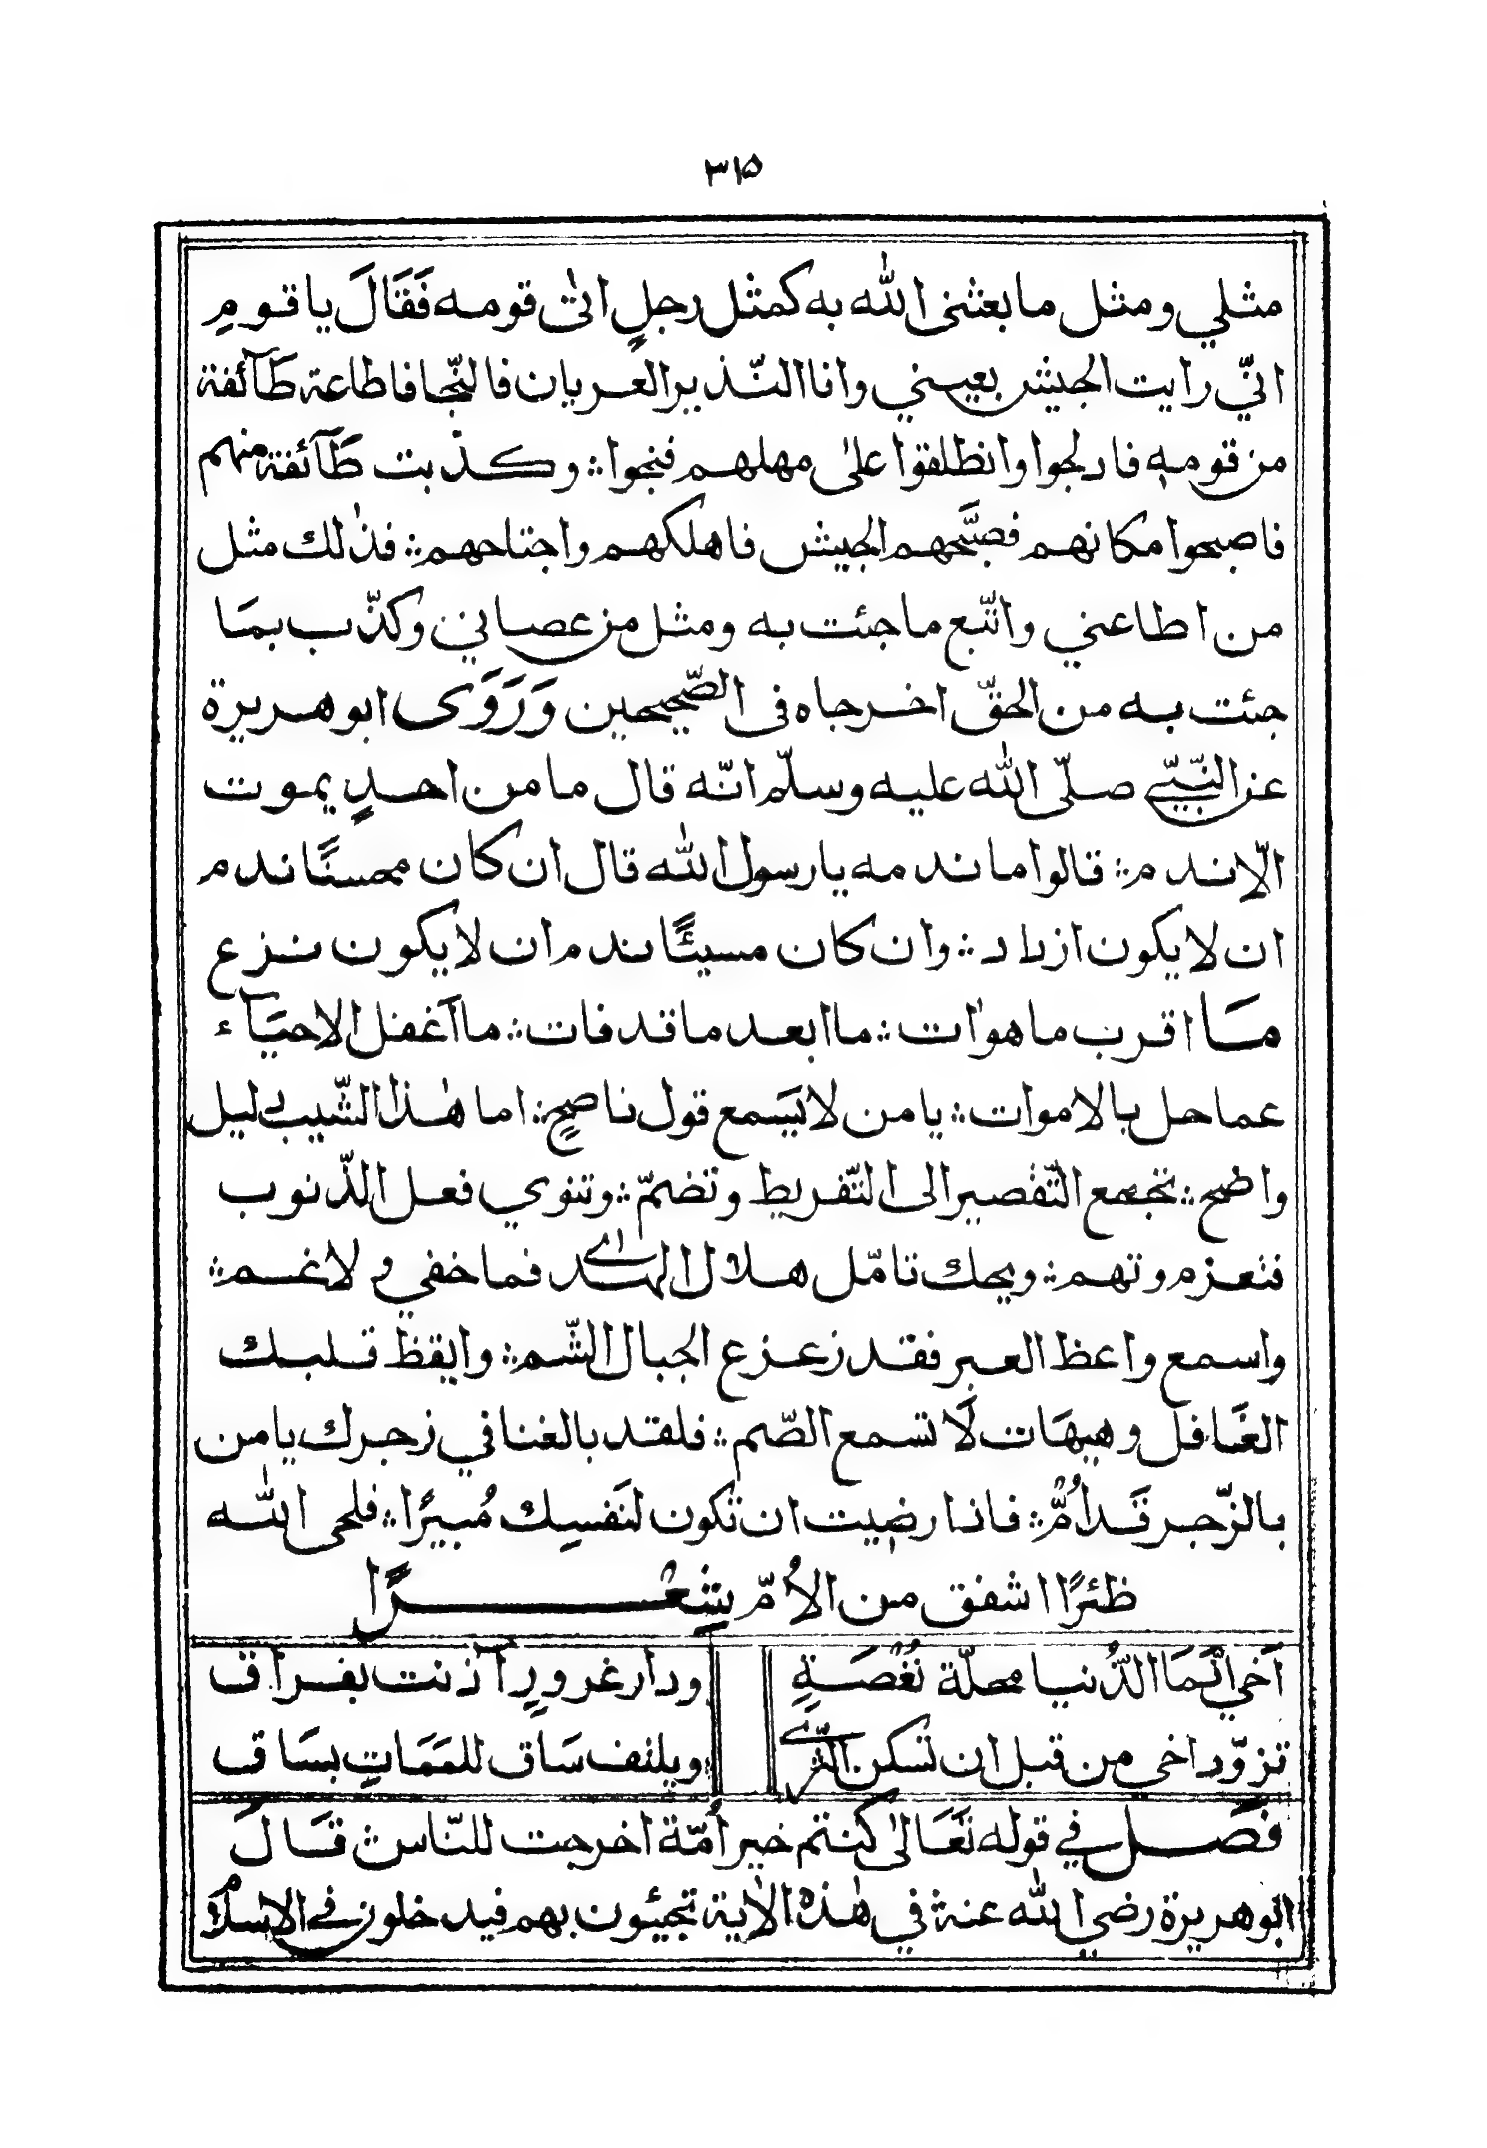 ٣١۵
مثلي ومثل ما بعثنى الله به كمثل رجلٍ اتىٰ قومه فَقَالَ يا قومِ
انّي رايت الجيش بعيني وانا النّذير العريان فالنّجا فاطاعة طَآئفة
من قومهٖ فادلجوا وانطلقوا علىٰ مهلهم فنجوا ؞ وكذبت طَآئفة منهم
فاصبحوا مكانهم فصبَّحهم الجيش فاهلكهم واجتاحهم ؞ فذٰلك مثل
من اطاعني واتّبع ما جئت به ومثل من عصاني وكذّب بمَا
جئت به من الحقّ اخرجاه فى الصّحيحين وَرَوَى ابو هريرة
عن النّبيّ صلّى الله عليه وسلّم انّه قال ما من احدٍ يموت
الّا ندم ؞ قالوا ما ندمه يا رسول الله قال ان كان محسنًا ندم
ان لا يكون ازداد ؞ وان كان مسيئًا ندم ان لا يكون نزع
مَا اقرب ما هو اٰت ؞ ما ابعد ما قد فات ؞ ما اَغفل الاحيَآء
عما حل بالاموات ؞ يا من لا يَسَمع قول ناصحٍ ؞ اما هٰذا الشّيب دليل
واضح ؞ تجمع التّقصير الى التّفريط وتضمّ ؞ وتنوي فعل الذّنوب
فتعزم وتهم ؞ ويحك تامّل هلال الهدىٰ فما خفي ولا غم ؞
واسمع واعظ العبر فقد زعزع الجبال الشّم ؞ وايقظ قلبك
الغَافل وهيهَات لَا تسمع الصّم ؞ فلقد بالغنا في زجرك يا من
بالزّجر قَد اُمَّ ؞ فاذا رضيت ان تكون لنَفسِك مُبيرًا ؞ فلحى الله
ظئرًا اشفق من الاُمّ شِعْرًا
اَخي انّمَا الدُّنيا محلّة نُغْصَةٍ ودار غرورٍ آذنت بفراق
تزوّد اخي من قبل ان تسكن الثّرىٰ ويلتف سَاق للمَمَاتِ بسَاق
فَصَل في قوله تَعَالىٰ كنتم خير اُمّة اخرجت للنّاس قَالَ
ابو هريرة رضي الله عنه في هٰذه الاٰية تجيئون بهم فيدخلون فى الاسلام